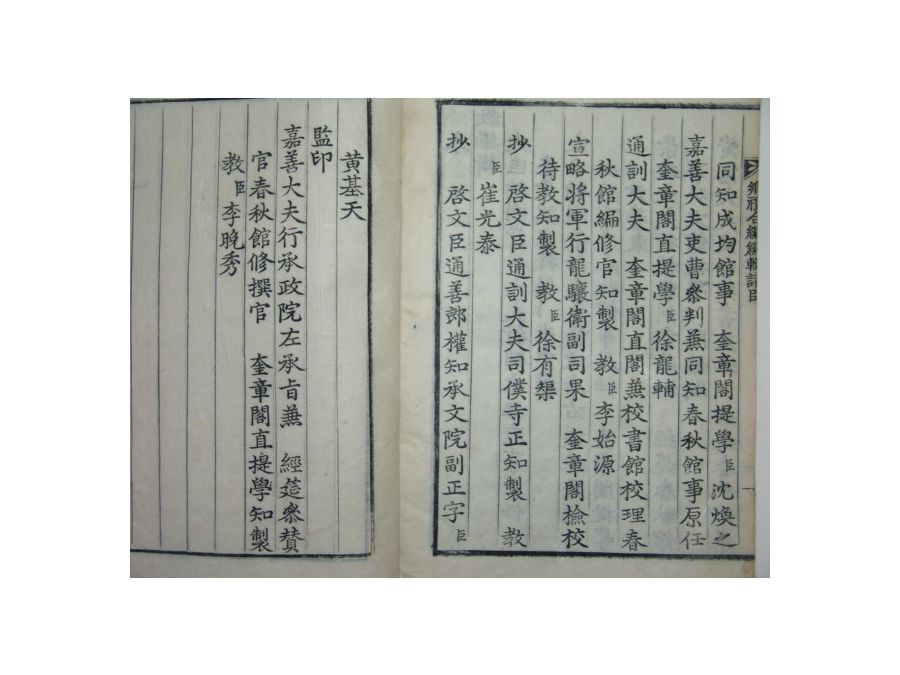 鄉禮合編編輯諸臣
同知成均館事 奎章閣提學臣沈煥之
嘉善大夫吏曹參判兼同知春秋館事原任
奎章閣直提學臣徐龍輔
通訓大夫 奎章閣直閣兼校書館校理春
秋館編修官知製 教臣李始源
宣略將軍行龍驤衛副司果 奎章閣檢校
待教知製 教臣徐有榘
抄 啓文臣通訓大夫司僕寺正知製 教
臣崔光泰
抄 啓文臣通善郎權知承文院副正字臣
黃基天
監印
嘉善大夫行承政院左承旨兼 經筵參贊
官春秋館修撰官 奎章閣直提學知製
教臣李晚秀